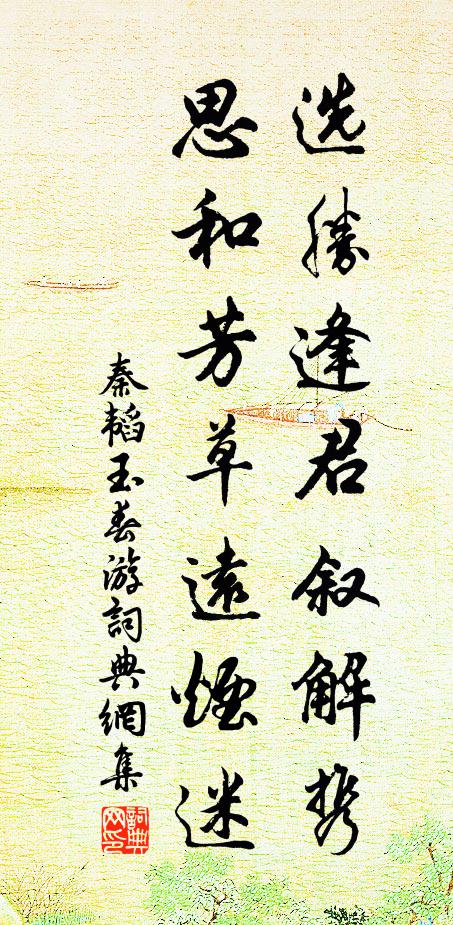 选勝逢君叙解携
思和芳草遠煙迷
秦韜玉春游詞典網集
詞典网印